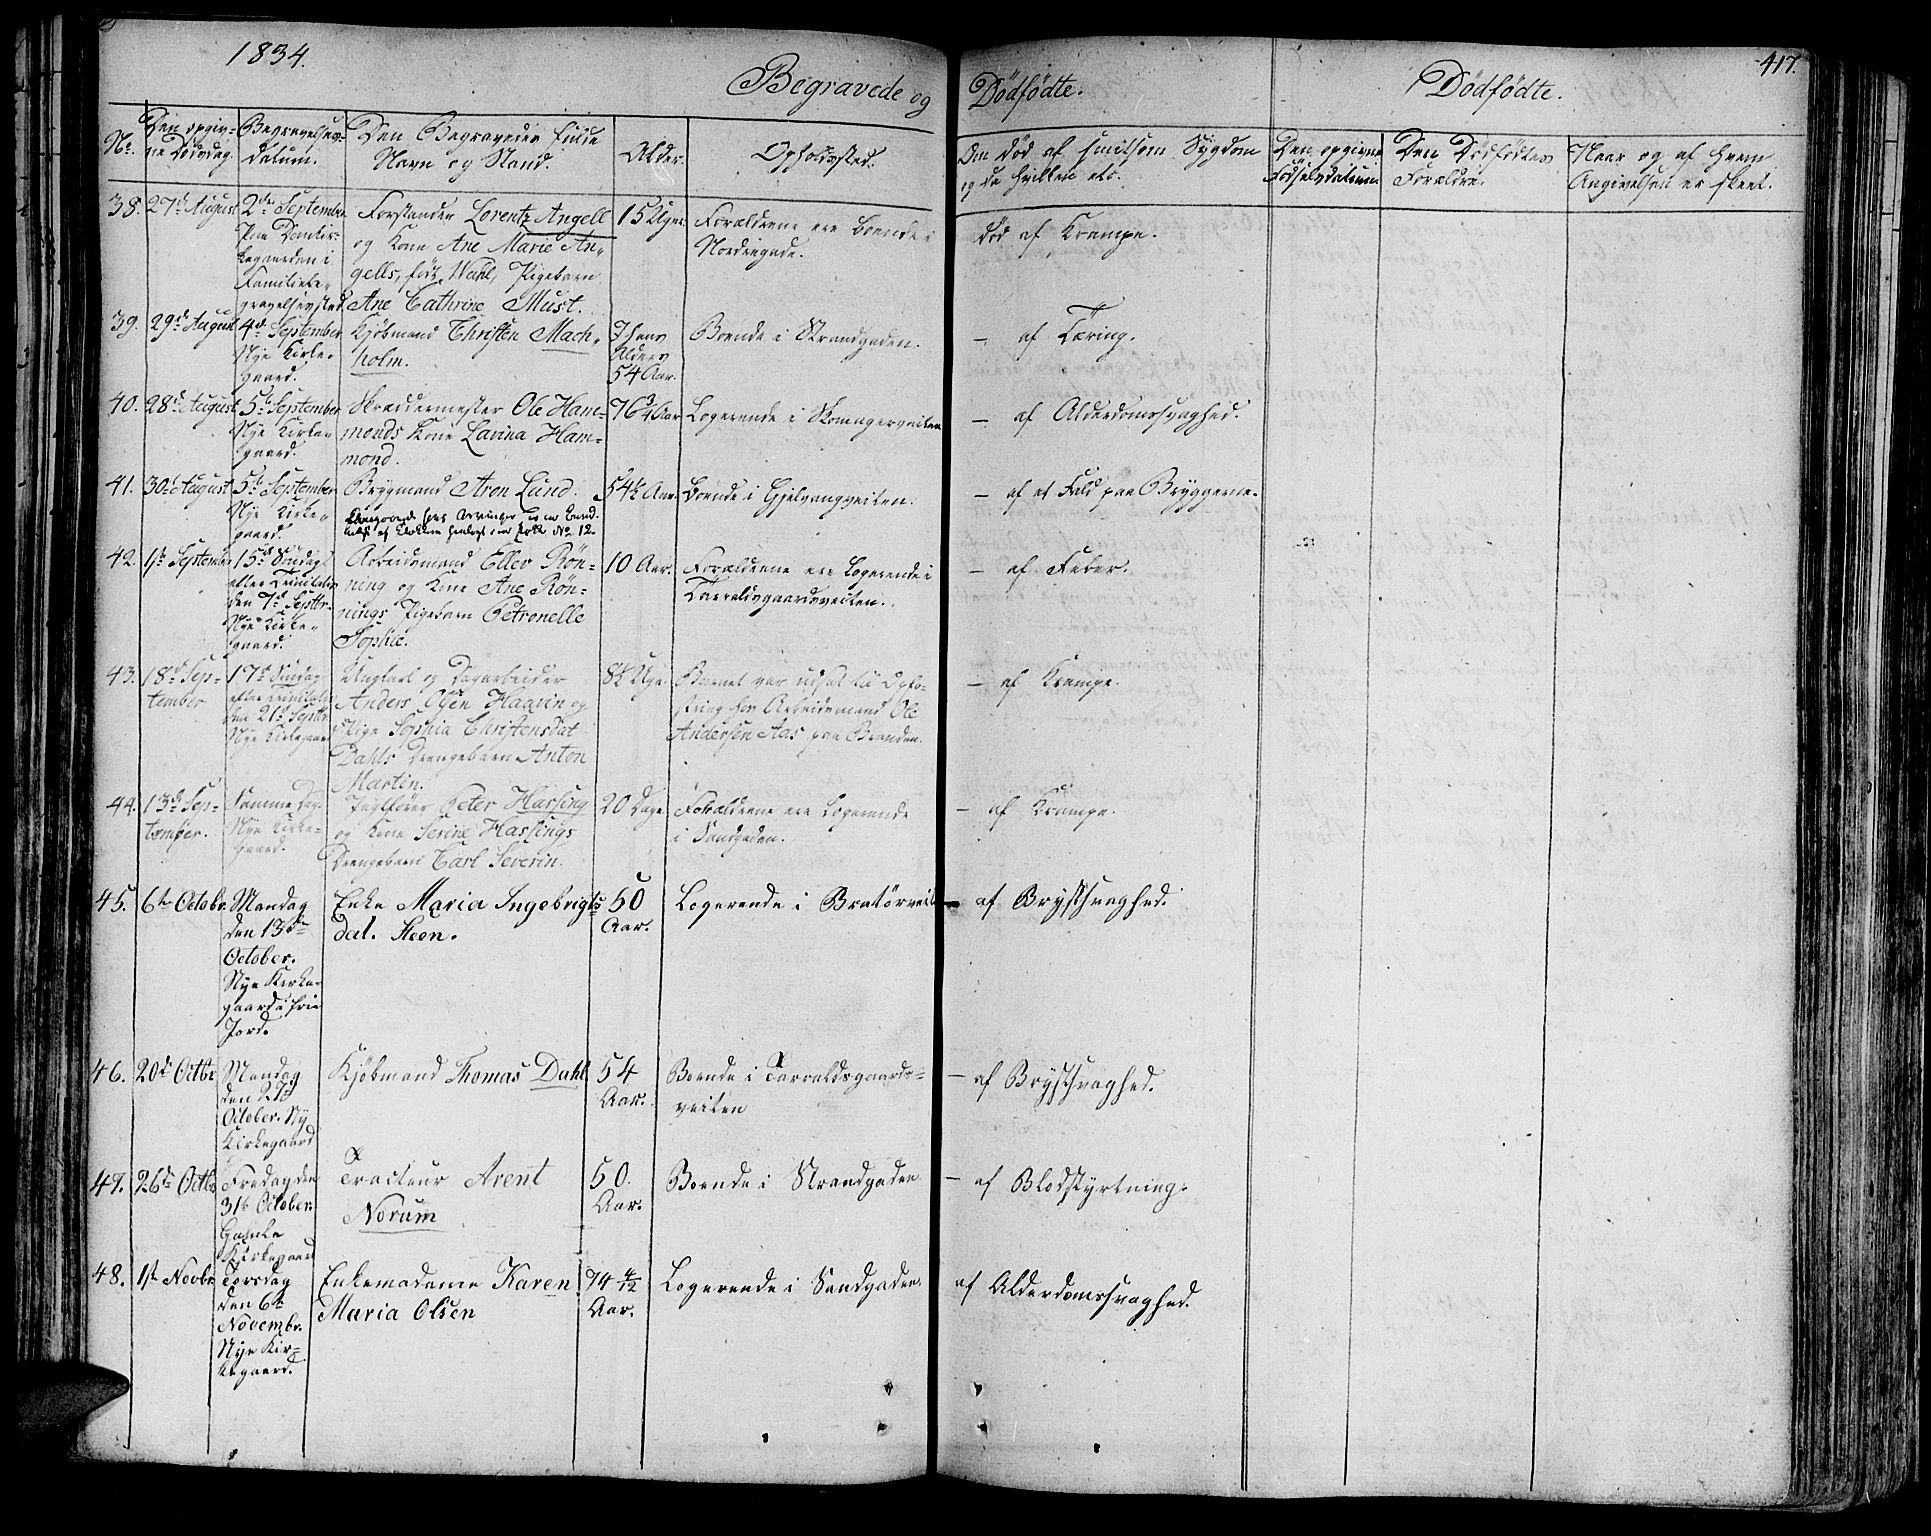 1834.
417.
Begravede og Dödfödte.
Dödfödte.
No.
Den opgiv-
ne Dödsdag.
Begravelses-
datum.
Den Begravedes fulde
Navn og Stand.
Alder.
Opholdssted.
Om död af smitsom Sygdom
og da hvilken etc.
Den opgivne
Födselsdatum.
Den Dödfödtes
Forældre.
Naar og af hvem
Angivelsen er skeet.
38. 27de August
2den September
Paa Domkir-
kegaarden i
Familiebe-
gravelsessted.
Forstander Lorentz Angell
og Kone Ane Marie An-
gells, födt Wahl, Pigebarn
Ane Cathrine Must.
15 Uger.
Forældrene ere boende i
Nordregade.
död af Krampe.
39. 29de August
4de September
Nye Kirke-
gaard.
Kjöbmand Christen Mach-
holm.
I hans
Alders
54 Aar.
Boende i Strandgaden.
— af Tæring.
40. 28de August
5te September
Nye Kirke-
gaard.
Skræddermester Ole Ham-
monds Kone Lavina Ham-
mond.
76 3/4 Aar
Logerende i Skomagerveiten
— af Alderdomssvaghed.
41. 30te August
5te September
Nye Kirke-
gaard.
Brygmand Aren Lund.
No. 12.
54 1/2 Aar.
Boende i Gjelvangveiten.
— af et Fald paa Bryggerne.
42. 1ste September
15de Söndag
efter Trinitatis
den 7de Septbr.
Nye Kirke-
gaard.
Arbeidsmand Ellev Rön-
ning og Kone Ane Rön-
nings Pigebarn Petronelle
Sophie.
10 Aar.
Forældrene ere Logerende i
Taraldsgaardsveiten.
— af Feber.
43. 18de Sep-
tember
17de Söndag
efter Trinitatis
den 21de Septbr.
Nye Kirkegaard
Ungkarl og Dagarbeider
Anders Olsen Haavin og
Pige Sophia Christensdat
Dahls Drengebarn Anton
Martin.
8 1/2 Uge
Barnet var udsat til Opfo-
string hos Arbeidsmand Ole
Andersen Aas paa Baronden.
— af Krampe.
44. 13de Sep-
tember.
Samme Dag.
Nye Kirke-
gaard.
Peter Hassing
og Kone Serine Hassings
Drengebarn Carl Severin.
20 Dage
Forældrene ere Logerende
i Sandgaden.
— af Krampe.
45. 6te Octobr.
Mandag
den 13de
October.
Nye Kirke-
gaard i frie
Jord.
Enke Maria Ingebrigts
dat. Steen.
50
Aar.
Logerende i Bratörveit
— af Brystsvaghed.
46. 20de Octbr
Mandag
den 27de
October. Ny
Kirkegaard
Kjöbmand Thomas Dahl
54
Aar.
Boende i Tarraldsgaards-
veiten
— af Brystsvaghed.
47. 26de Octbr
Fredag den
31te October.
Gamle
Kirkegaard
Tracteur Arent
Norum
50.
Aar.
Boende i Strandgaden
— af Blodstyrtning.
48. 1ste Novbr
Torsdag
den 6te
Novembr.
Nye Kir-
kegaard.
Enkemadame Karen
Maria Olsen
74 4/12
Aar.
Logerende i Sandgaden.
af Alderdomssvaghed.